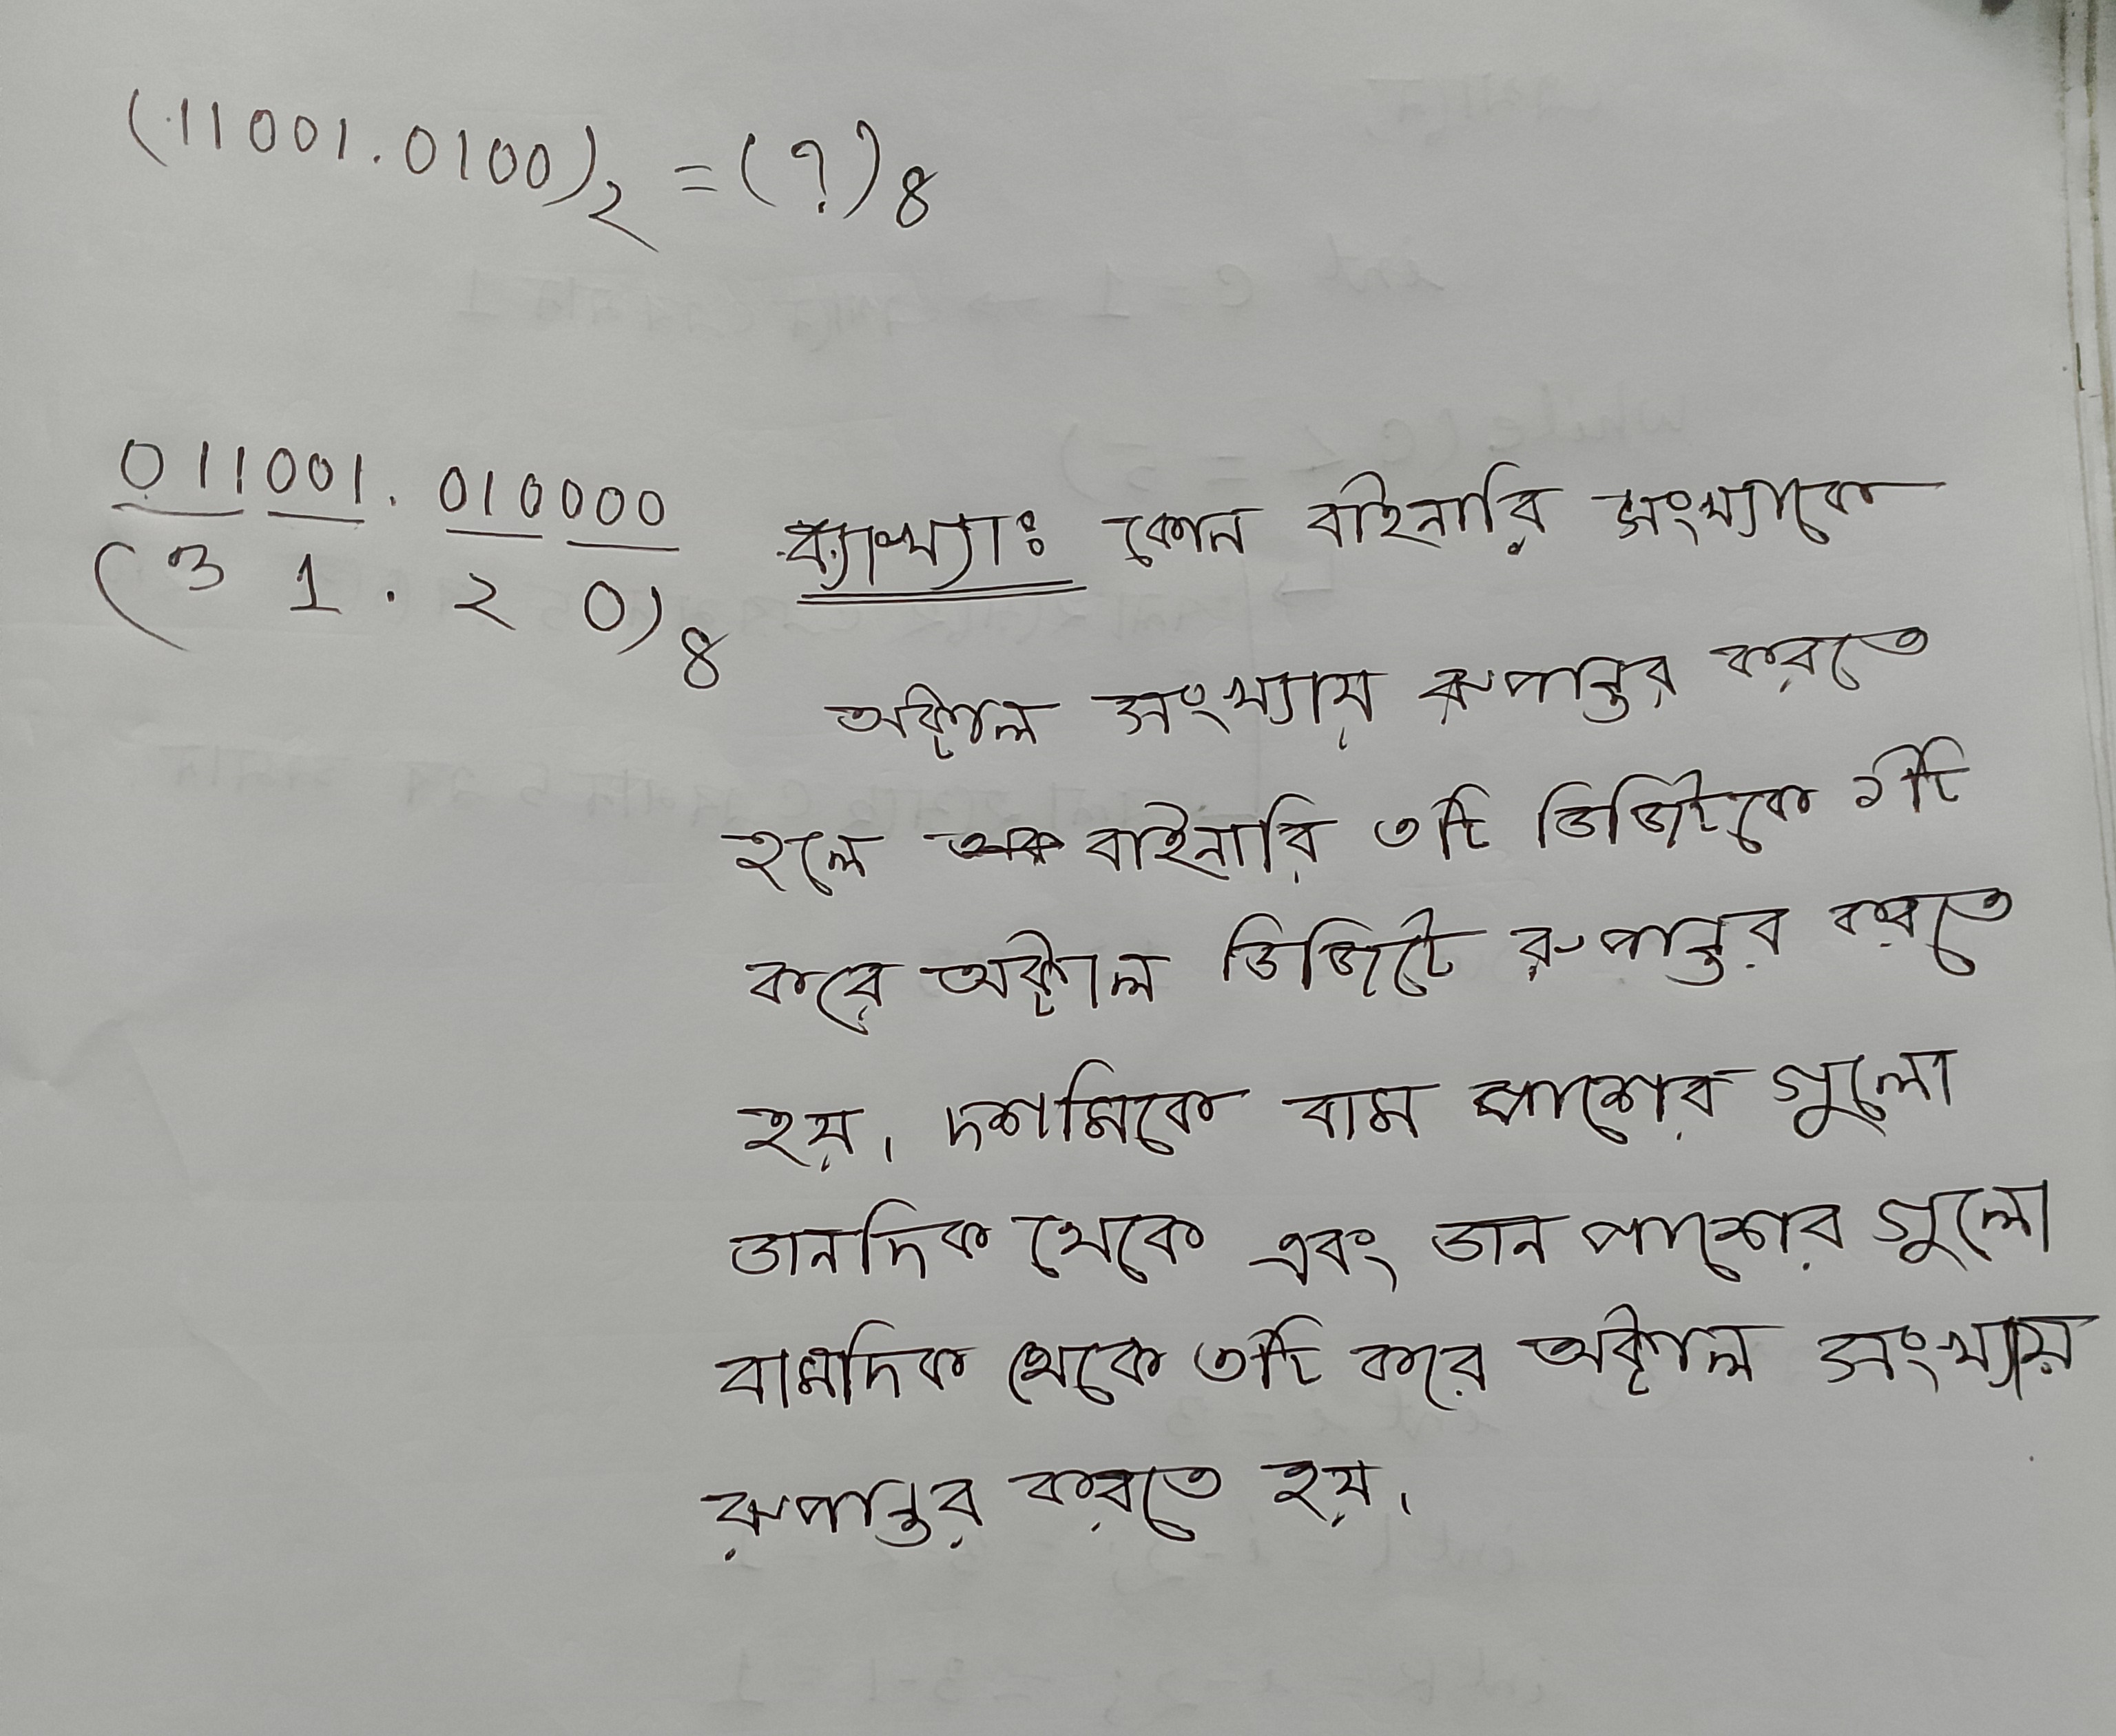 (11001.0100)₂ = (?)₈
011001.010000
(3 1 . 2 0)₈
ব্যাখ্যাঃ কোন বাইনারি সংখ্যাকে
অক্টাল সংখ্যায় রুপান্তর করতে
হলে বাইনারি ৩টি ডিজিটকে ১টি
করে অক্টাল ডিজিটে রুপান্তর করতে
হয়। দশমিকে বাম পাশের গুলো
ডানদিক থেকে এবং ডান পাশের গুলো
বামদিক থেকে ৩টি করে অক্টাল সংখ্যায়
রুপান্তর করতে হয়।